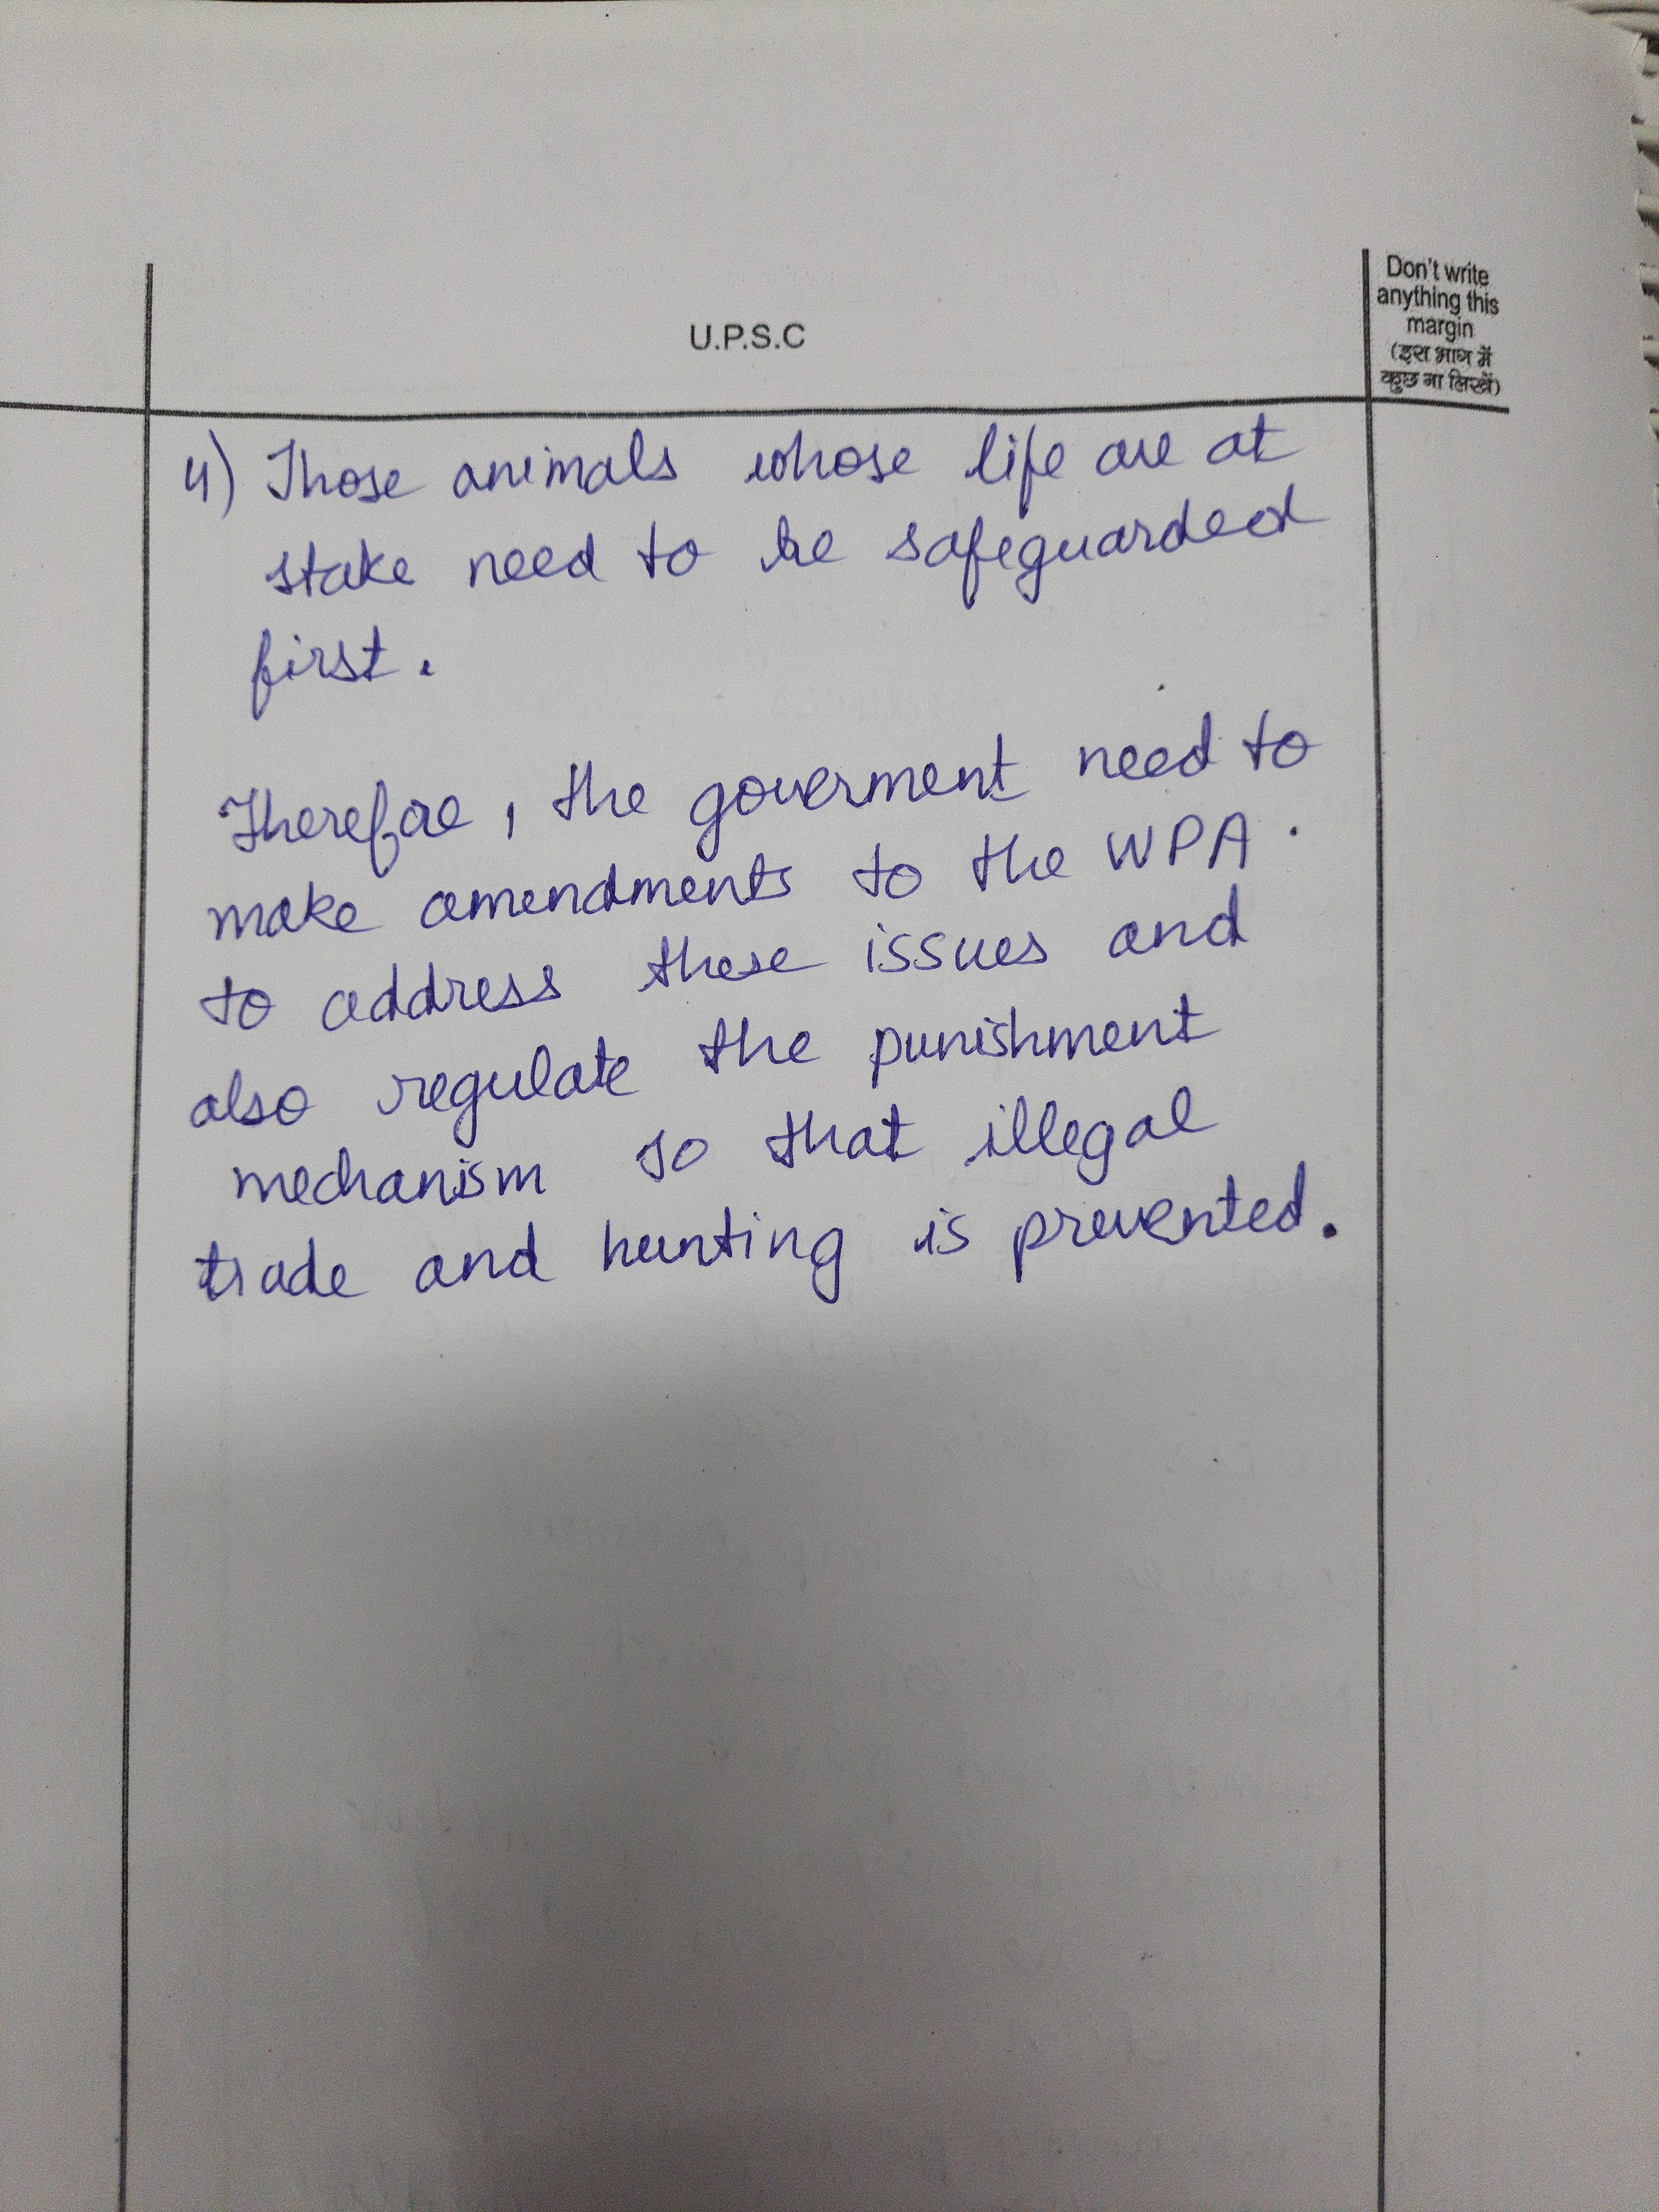 U.P.S.C
Don't write
anything this
margin
(इस भाग में
कुछ ना लिखें)
4) Those animals whose life are at
stake need to be safeguarded
first.
Therefore, the goverment need to
make amendments to the WPA.
to address these issues and
also regulate the punishment
mechanism so that illegal
trade and hunting is prevented.